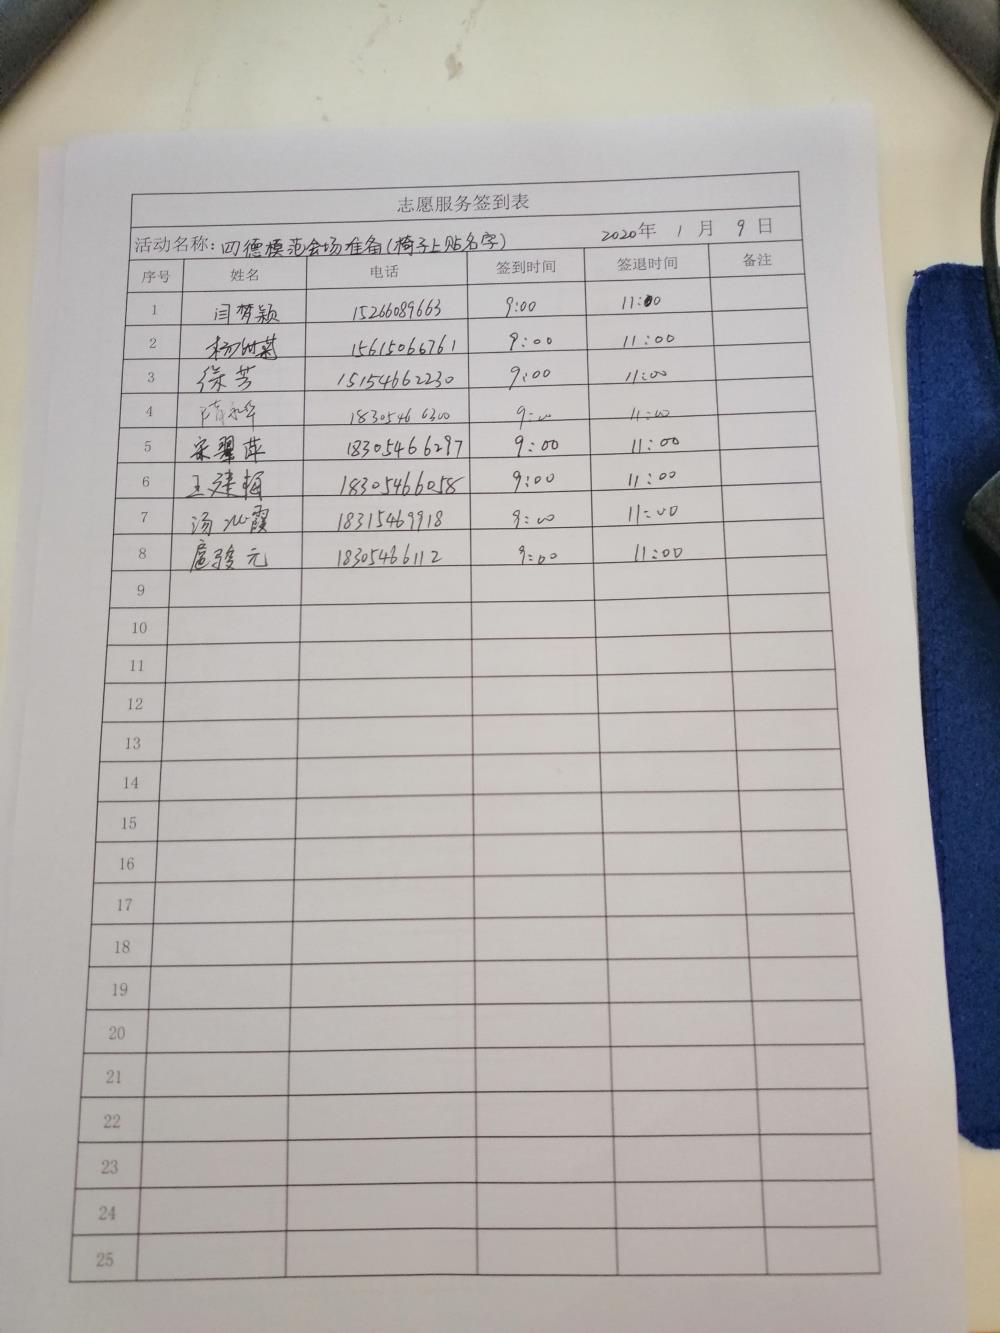 志愿服务签到表
活动名称：四德模范会场准备(椅子上贴名字) 2020年 1月 9日
序号 姓名 电话 签到时间 签退时间 备注
1 闫梦颖 15266089663 9:00 11:00
2 杨 菊 15615066761 9:00 11:00
3 徐芳 15154662230 9:00 11:00
4 18305466300 9:00 11:00
5 宋翠萍 18305466297 9:00 11:00
6 王建梅 18305466058 9:00 11:00
7 汤 霞 18315469918 9:00 11:00
8 扈骏元 18305466112 9:00 11:00
9
10
11
12
13
14
15
16
17
18
19
20
21
22
23
24
25